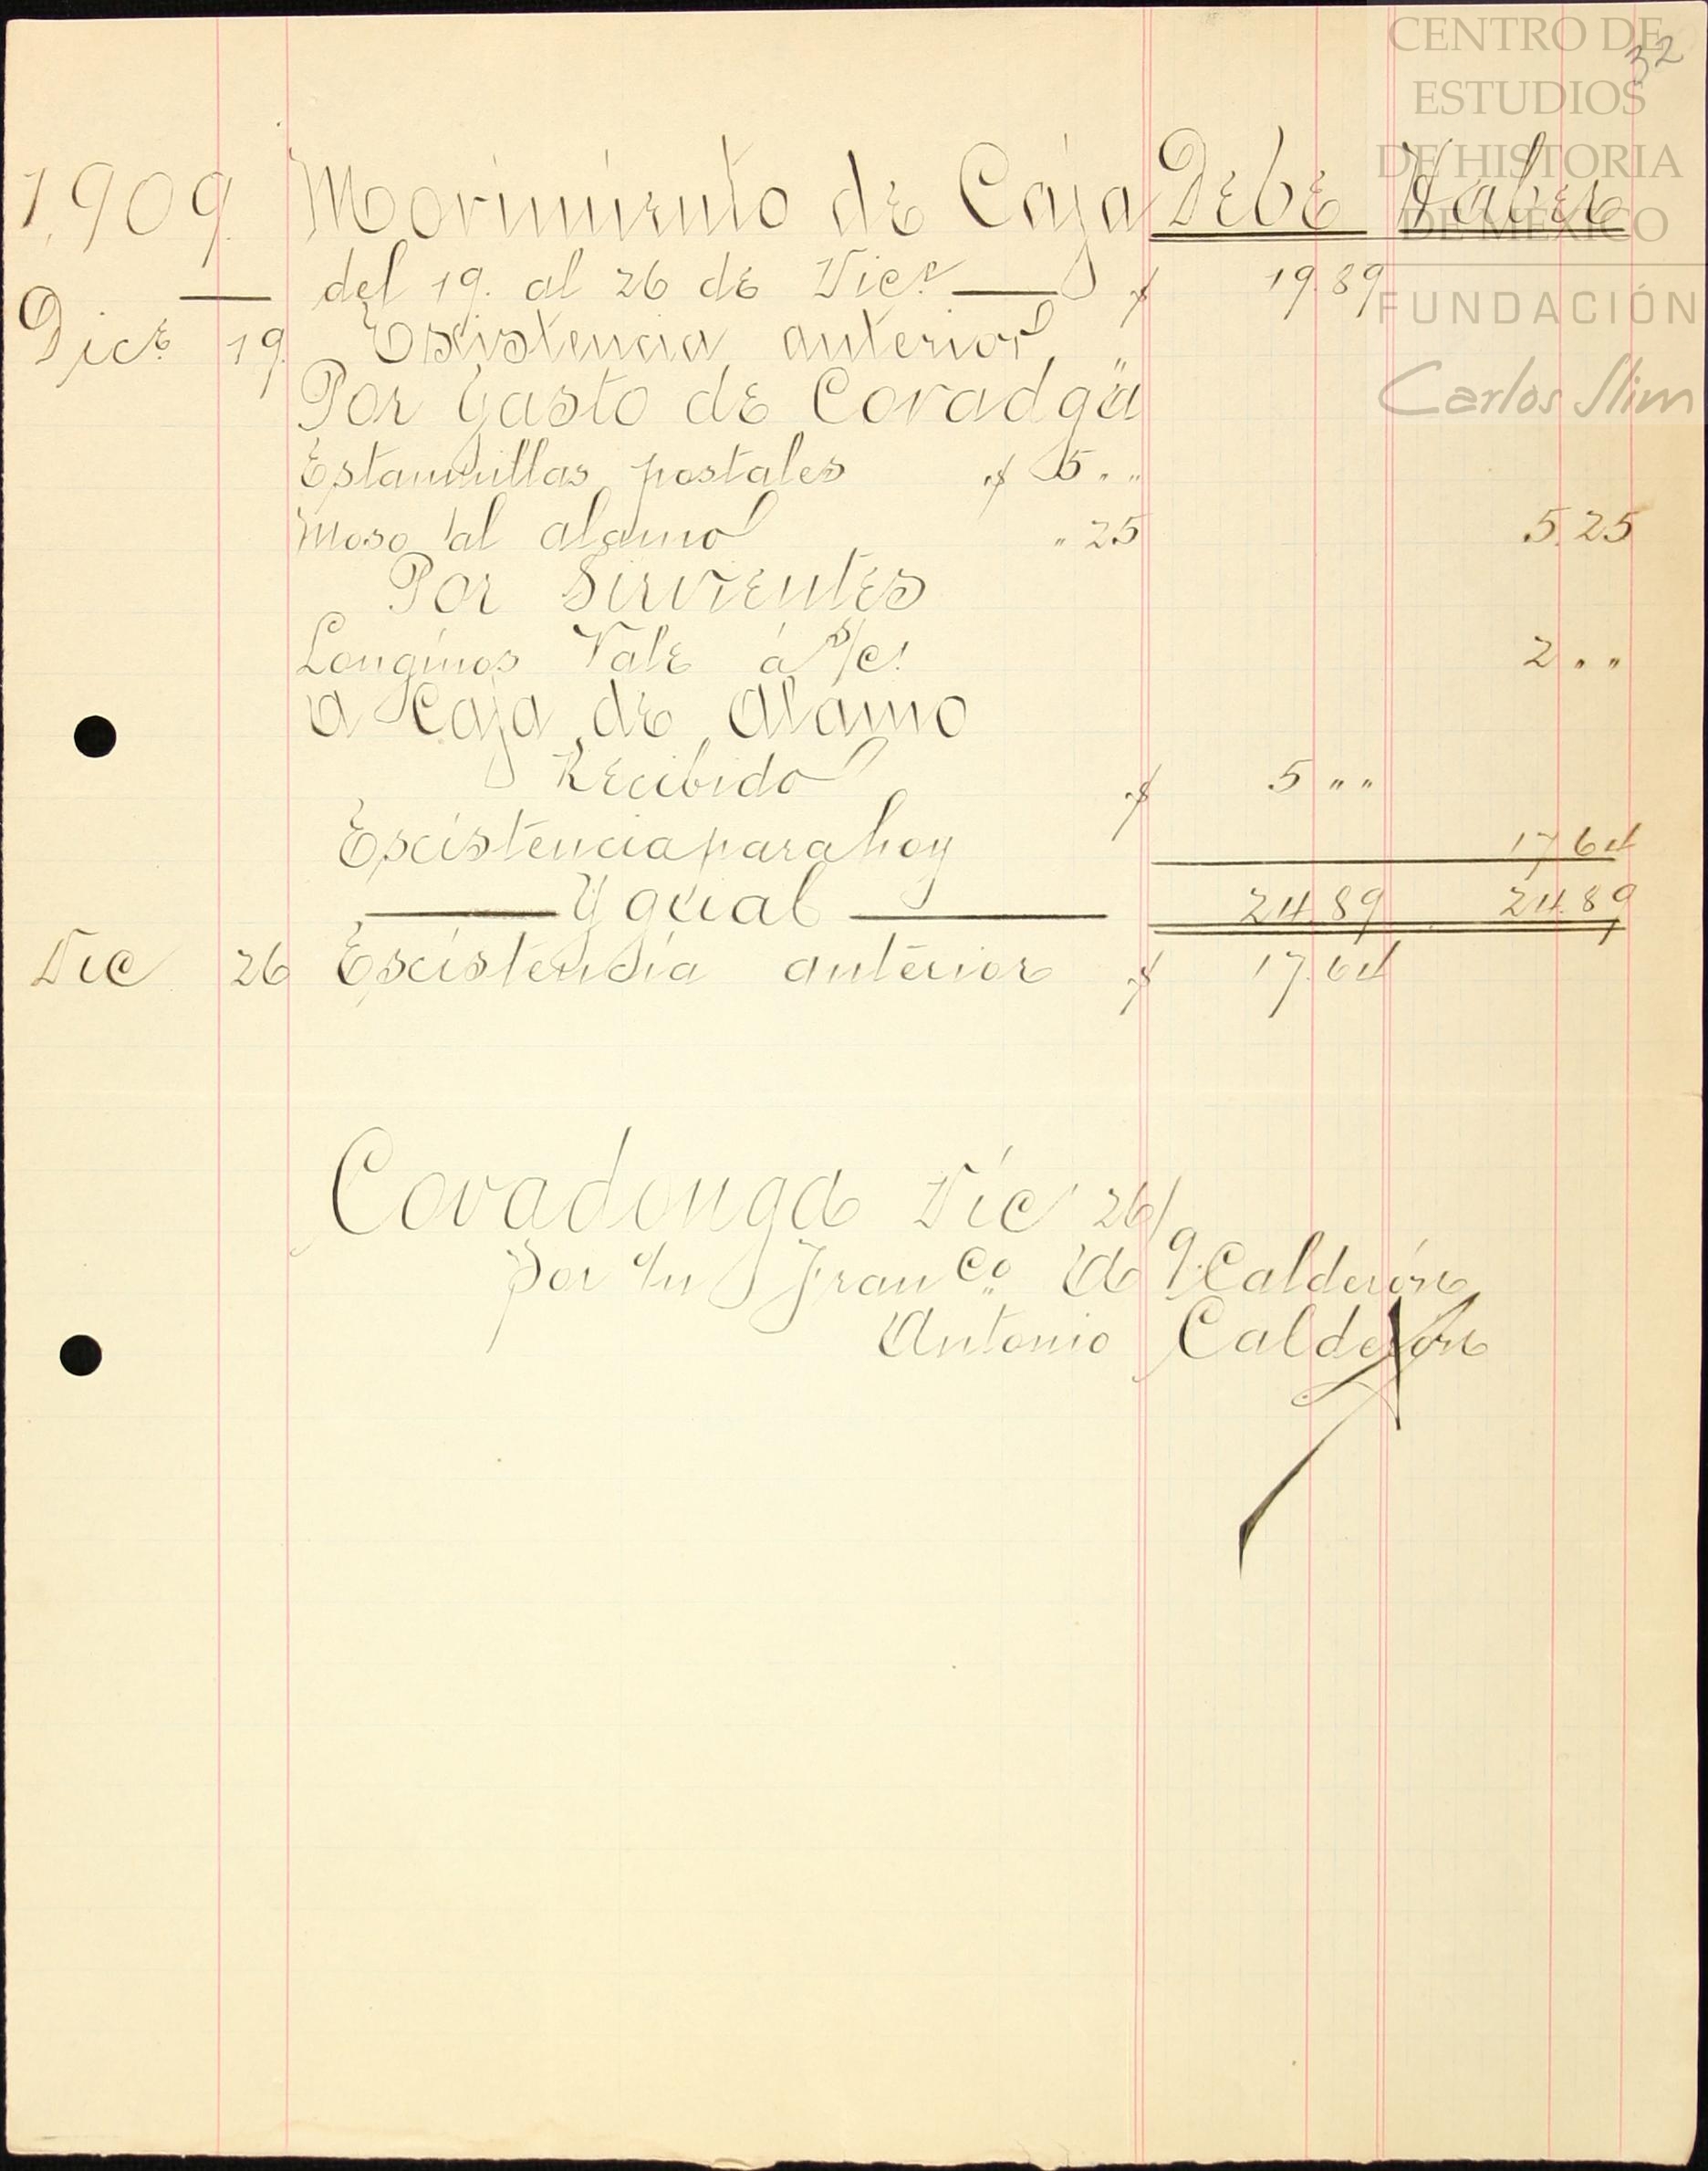 CENTRO DE
ESTUDIOS
DE HISTORIA
DE MÉXICO
FUNDACIÓN
Carlos Slim
32
1,909. Movimiento de Caja Debe Haber
del 19. al 26 de Dice $ 19.89
Dice 19. Escistencia anterior
Por Gasto de Covadga
Estampillas postales $ 5. „
Moso al alamo „ 25 5.25
Por Sirvientes
Longinos Vale á s/c. 2 „ „
A Caja de Alamo
Recibido $ 5 „ „
Escistencia para hoy 17.64
Ygual 24.89 24.89
Dic 26 Escistensia anterior $ 17.64
Covadonga Dic 26/9.
por Franco. A Calderón
Antonio Calderon